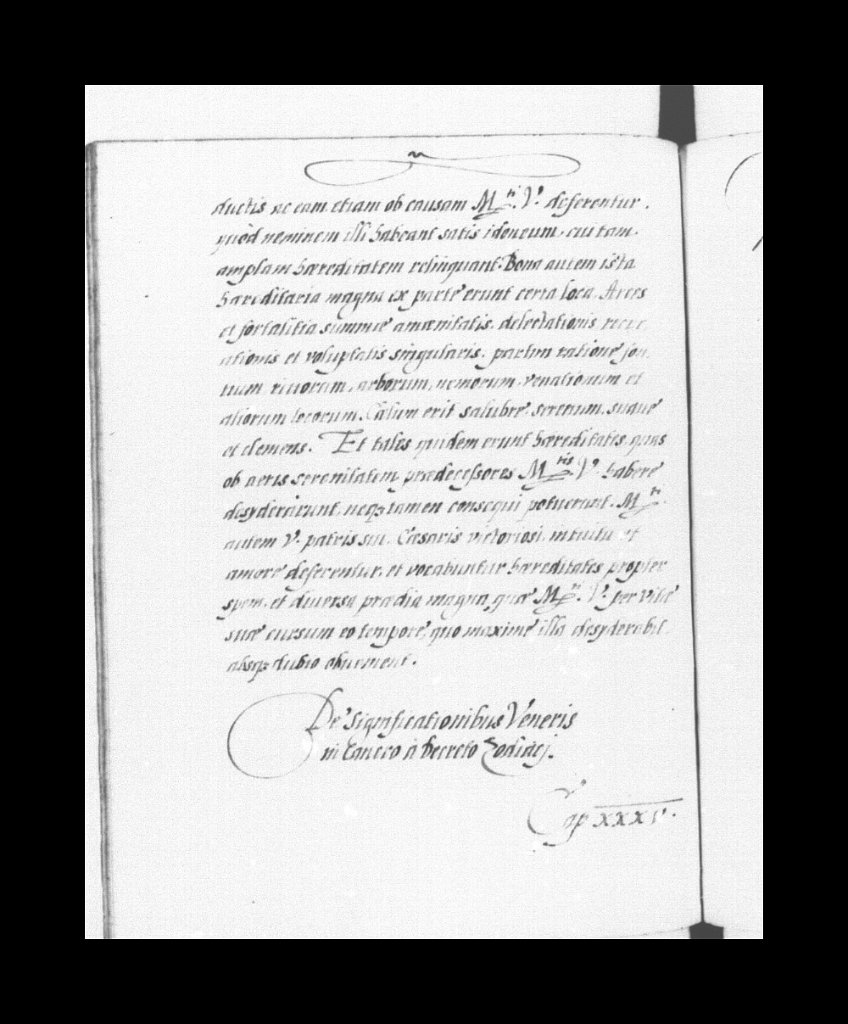 ductis ac eam etiam ob causam M.ti V.ę deferentur.
quòd neminem illi habeant satis idoneum, cui tam
amplam hæreditatem relinquant. Bona autem ista
hæreditaria magna ex parte erunt certa loca, Arces
et fortalitia summæ amænitatis, delectationis recre
ationis et voluptatis singularis, partim ratione fon
tium rivorum, arborum, nemorum, venationum et
aliorum locorum. Cælum erit salubre, serenum, suave
et clemens. Et tales quidem erunt hæreditates, quas
ob aeris serenitatem prædecessores M.tis V.ę habere
desyderarunt, neqz tamen consequi potuerunt. M.ti
autem V.ę patris sui, Cæsaris victoriosi, intuitu et
amore deferentur, et vocabuntur hæreditates propter
spem, et diversa prædia magna, quæ M.ti V.ę per vitæ
suæ cursum eo tempore, quo maxime illa desyderabit,
absqz dubio obvenient.
De Significationibus Veneris
in Cancro à Decreto Zodiaci.
Cap XXXV.